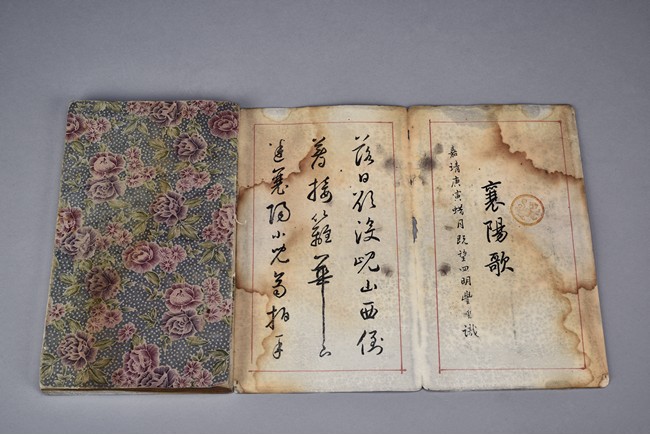 襄陽歌
嘉靖庚寅蜡月既望四明豐坊識
落日欲沒峴山西倒
著接䍦華下
迷襄陽小兒齊拍手